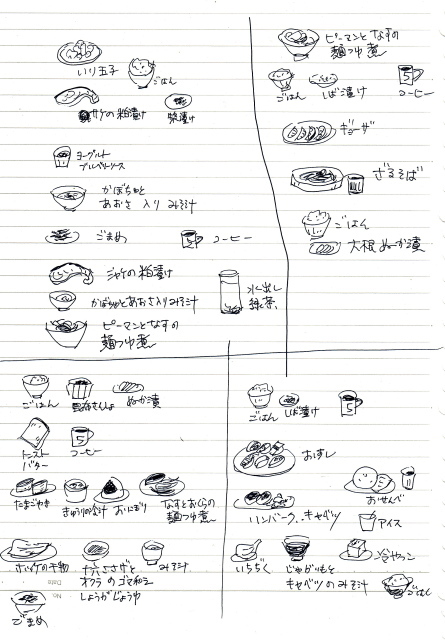 いり玉子
ごはん
サケの粕漬け
ヨーグルト
ブルーベリーソース
かぼちゃと
あおさ入りみそ汁
ごまめ
コーヒー
シャケの粕漬け
かぼちゃとあおさ入りみそ汁
水出し
緑茶
ピーマンとなすの
麺つゆ煮
ピーマンとなすの
麺つゆ煮
ごはん
しば漬け
5
コーヒー
ギョーザ
ざるそば
ごはん
大根ぬか漬
ごはん
ぬか漬
トースト
バター
5
コーヒー
たまごやき
きゅうりの冷汁
おにぎり
なすとおくらの
麺つゆ煮
ホッケの干物
十六ささげと
オクラのゴマ和え
しょうがじょうゆ
みそ汁
ごまめ
ごはん
しば漬け
5
おすし
おせんべ
ハンバーグ、キャベツ
アイス
いちぢく
じゃがいもと
キャベツのみそ汁
冷やっこ
ごはん